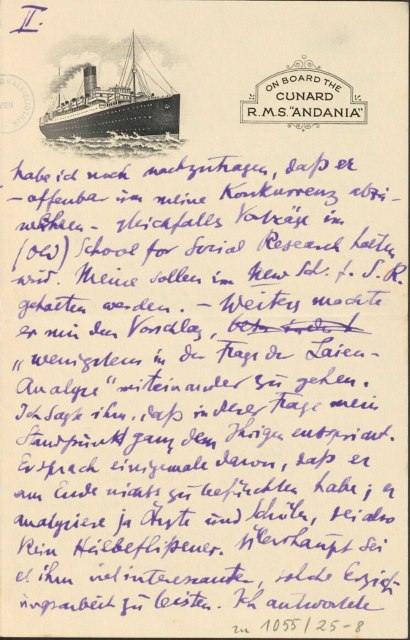 II.
ON BOARD THE
CUNARD
R.M.S. "ANDANIA"
habe ich noch nachzutragen, daß er
– offenbar um meine Konkurrenz abzu-
wehren – gleichfalls Vorträge im
(Old) School for Social Research halten
wird. Meine sollen im New Sch. f. S. R.
gehalten werden. – Weiters machte
er mir den Vorschlag,
„wenigstens in der Frage der Laien-
Analyse" miteinander zu gehen.
Ich sagte ihm, daß in dieser Frage mein
Standpunkt ganz dem Ihrigen entspricht.
Er sprach einigemale davon, daß er
am Ende nichts zu befürchten habe; er
analysiere ja Ärzte und Schüler, sei also
kein Heilbeflißener. Überhaupt sei
es ihm viel interessanter, solche Erzieh-
ungsarbeit zu leisten. Ich antwortete
zu 1055/25-8